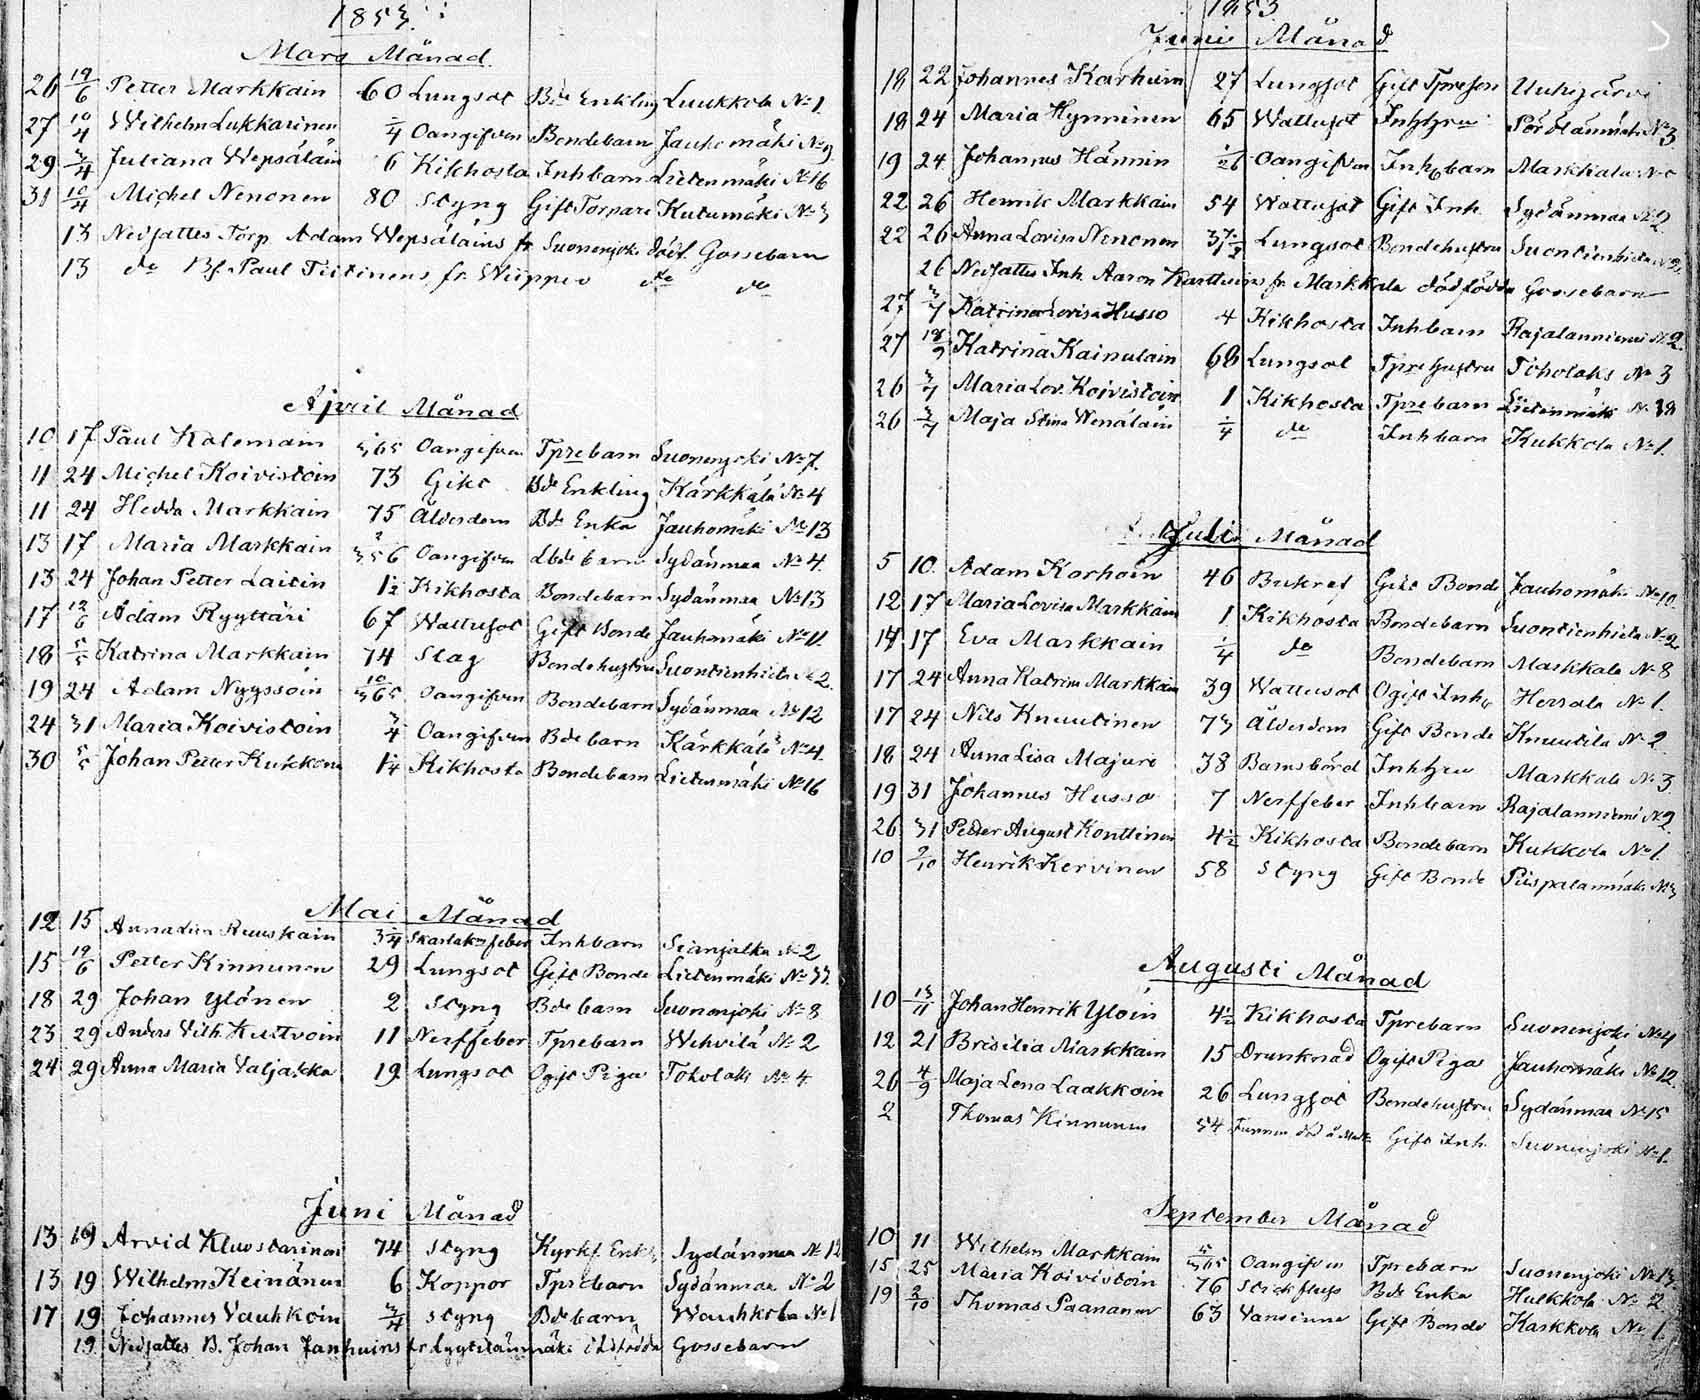 1853
Mars Månad
26 19/6 Petter Markkain 60 Lungsot Bde Enkling Luukkola No 1
27 10/4 Wilhelm Lukkarinen 1/4 Oangifven Bondebarn Jauhomäki No 9
29 3/4 Juliana Wepsäläin 6 Kikhosta Inhbarn Lietenmäki No 16
31 10/4 Michel Nenonen 80 Styng Gift Torpare Kutumäki No 3
13 Nedsattes Torp Adam Wepsäläins fr Suonenjoki dödf. Gossebarn
13 do Bf. Paul Tiitinens fr Wiippero do do
April Månad
10 17 Paul Kolemain 3/365 Oangifven Tprebarn Suonenjoki No 7
11 24 Michel Koivistoin 73 Gikt Bde Enkling Kärkkälä No 4
11 24 Hedda Markkain 75 Ålderdom Bde Enka Jauhomäki No 13
13 17 Maria Markkain Oangifven barn Sydänmaa No 4
13 24 Johan Petter Laitin 1 1/2 Kikhosta Bondebarn Sydänmaa No 13
17 12/6 Adam Ryyttäri 67 Wattusot Gift Bonde Jauhomäki No 11
18 5/5 Katrina Markkain 74 Slag Bondehustru Suontienhieta No 2
19 24 Adam Nyyssöin 10/365 Oangifven Bondebarn Sydänmaa No 12
24 31 Maria Koivistoin 3/4 Oangifven Bdebarn Kärkkälä No 4
30 5/5 Johan Petter Kukkone 1 1/4 Kikhosta Bondebarn Lietenmäki No 16
Mai Månad
12 15 Anna Lisa Ruuskain 3 1/4 Skarlaknsfeber Inhbarn Sianjalka No 2
15 19/6 Petter Kinnunen 29 Lungsot Gift Bonde Lietenmäki No 33
18 29 Johan Ylönen 2 Styng Bdebarn Suonenjoki No 8
23 29 Anders Vilh. Kuttvoin 11 Nerffeber Tprebarn Wehvilä No 2
24 29 Anna Maria Valjakka 19 Lungsot Ogift Piga Toholaks No 4
Juni Månad
13 19 Arvid Kluostarinen 74 Styng Kyrkf. Enkl. Sydänmaa No 12
13 19 Wilhelm Keinänen 6 Koppor Tprebarn Sydänmaa No 2
17 19 Johannes Vauhkoin 3/4 Styng Bdebarn Wauhkola No 1
19 Nedsattes B. Johan Janhuins fr Lyytilänmäki dödfödda Gossebarn
1853
Juni Månad
18 22 Johannes Karhuin 27 Lungsot Gift Tpreson Uuhijärvi
18 24 Maria Hynninen 65 Wattusot Inhhru Pörölänmäki No 3
19 24 Johannes Hännin 1/26 Oangifven Inhbarn Markkala No
22 26 Henrik Markkain 54 Wattusot Gift Inh. Sydänmaa No 2
22 26 Anna Lovisa Nenonen Lungsot Bondehustru Suontienhieta No 2
26 Nedsattes Inh. Aaron Karttuins fr Markkala dödfödda Gossebarn
27 3/7 Katrina Lovisa Husso 4 Kikhosta Inhbarn Rajalanniemi No 2
27 Katrina Kainulain 68 Lungsot Tprehustru Toholaks No 3
26 3/7 Maria Lov. Koivistoin 1 Kikhosta Tprebarn Lietenmäki No 38
26 3/7 Maja Stina Wenäläin 1/4 do Inhbarn Kukkola No 1
Juli Månad
5 10 Adam Korhoin 46 Bukref Gift Bonde Jauhomäki No 10
12 17 Maria Lovisa Markkain 1 Kikhosta Bondebarn Suontienhieta No 2
14 17 Eva Markkain 1/4 do Bondebarn Markkala No 8
17 24 Anna Katrina Markkain 39 Wattusot Ogift Inh. Herrala No 1
17 24 Nils Knuutinen 73 Ålderdom Gift Bonde Knuutila No 2
18 24 Anna Lisa Majuri 38 Barnsbörd Inhhru Markkala No 3
19 31 Johannes Husso 7 Nerffeber Inhbarn Rajalanniemi No 2
26 31 Petter August Konttinen 4 1/2 Kikhosta Bondebarn Kukkola No 1
10 2/10 Henrik Kervinen 58 Styng Gift Bonde Piispalanmäki No 3
Augusti Månad
10 13/11 Johan Henrik Ylöin 4 1/2 Kikhosta Tprebarn Suonenjoki No 4
12 21 Brisilia Markkain 15 Drunknad Ogift Piga Jauhomäki No 12
26 4/9 Maja Lena Laakkoin 26 Lungsot Bondehustru Sydänmaa No 15
2 Thomas Kinnunen 54 Funnen död å Gift Inh. Suonenjoki No 1
September Månad
10 11 Wilhelm Markkain 5/365 Oangifven Tprebarn Suonenjoki No 13
15 25 Maria Koivistoin 76 Stickfluss Bde Enka Hulkkola No 2
19 2/10 Thomas Paananen 63 Vansinne Gift Bonde Karkkola No 1